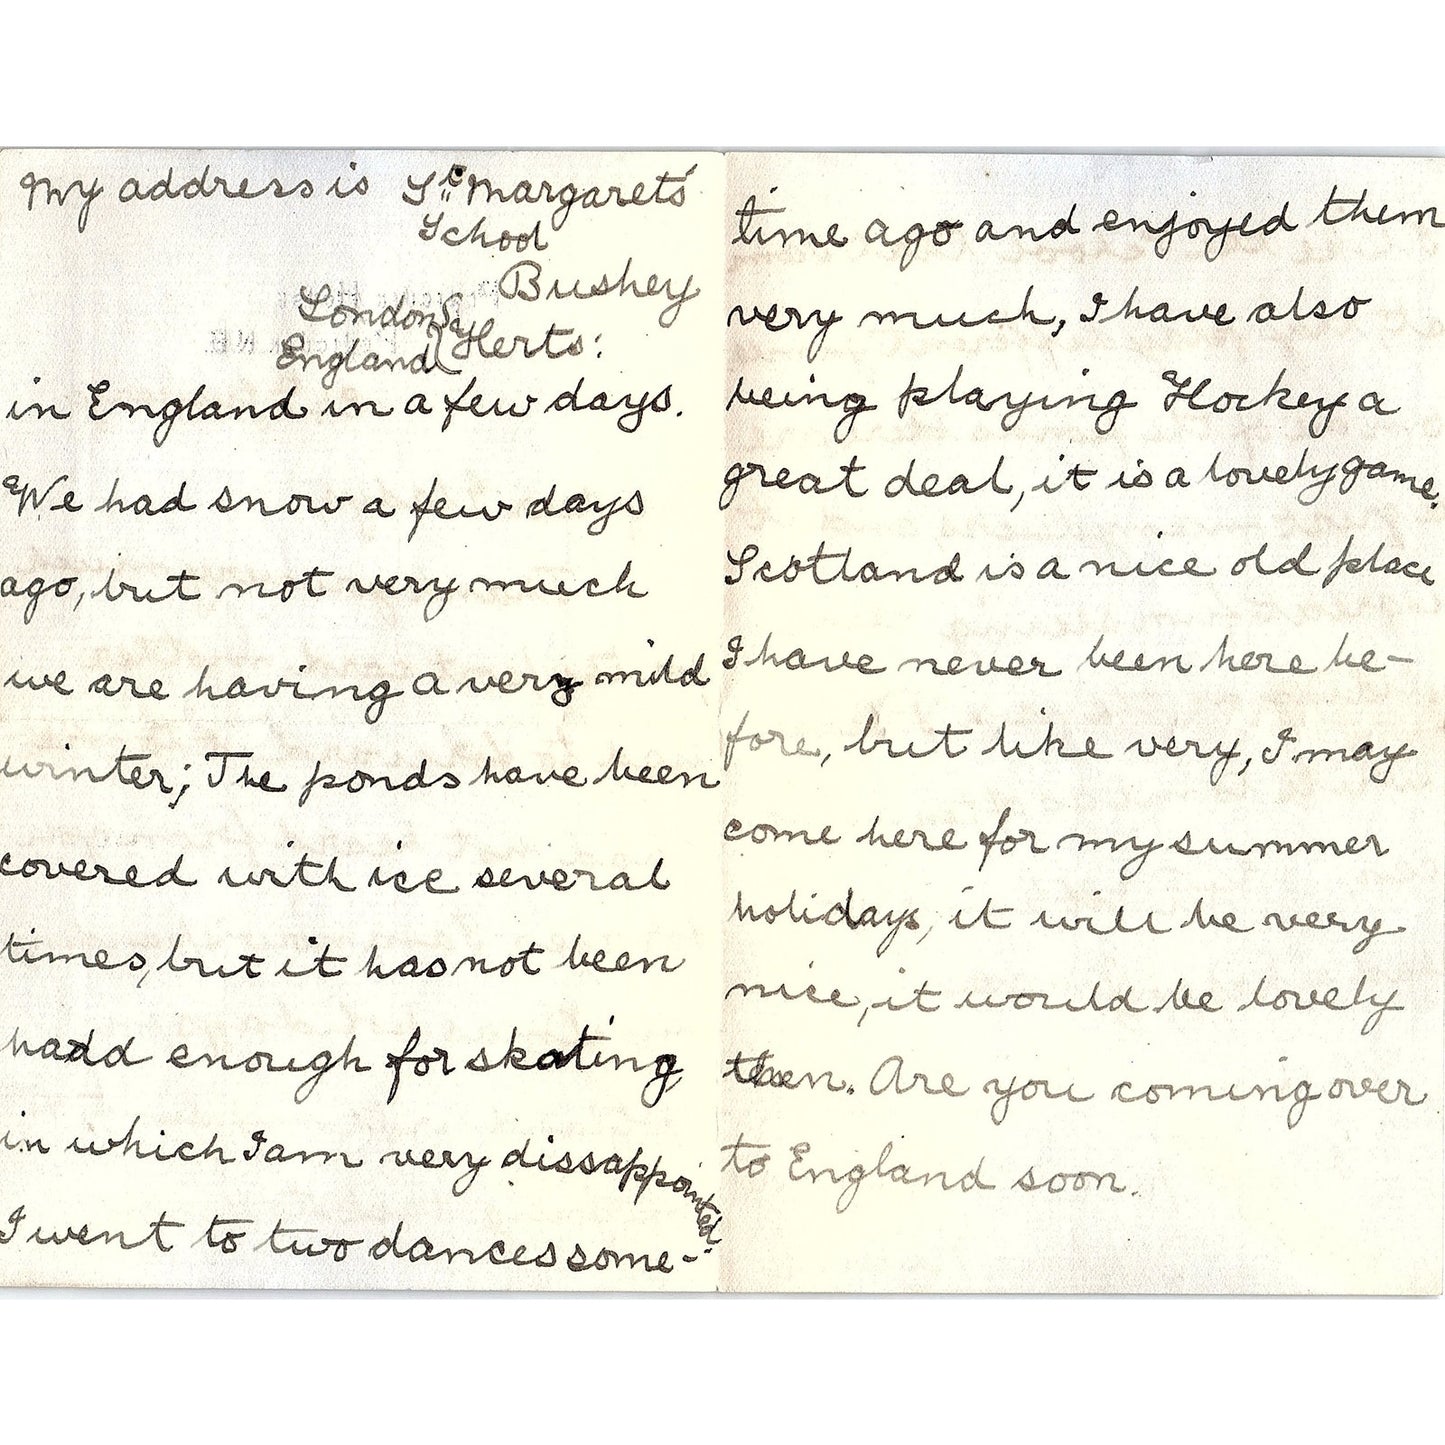 My address is St Margaret's
School
Bushey
London
England
Herts:
in England in a few days.
We had snow a few days
ago, but not very much
we are having a very mild
winter; The ponds have been
covered with ice several
times, but it has not been
hadd enough for skating
in which I am very dissappointed.
I went to two dances some-
time ago and enjoyed them
very much, I have also
being playing Hockey a
great deal, it is a lovely game.
Scotland is a nice old place
I have never been here be-
fore, but like very, I may
come here for my summer
holidays, it will be very
nice, it would be lovely
then. Are you coming over
to England soon.